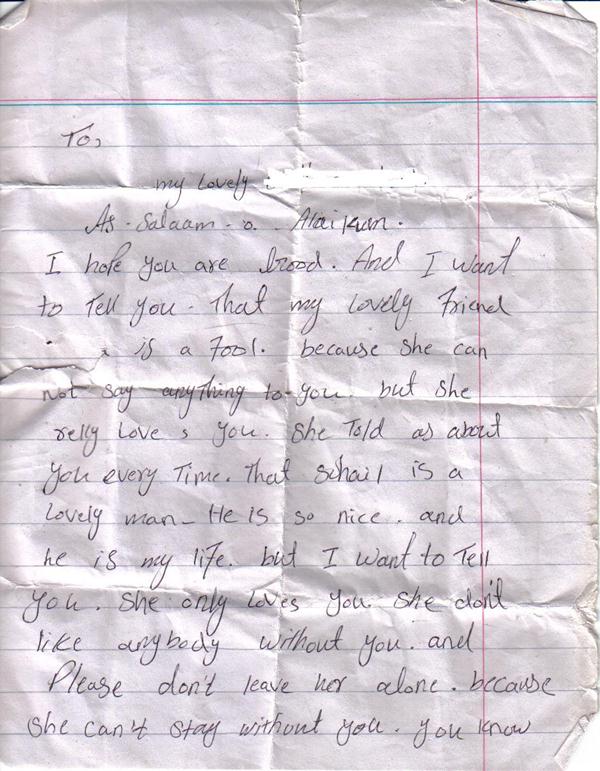 To,
my Lovely
As - Salaam - o - Alaikum.
I hope you are good. And I want
to Tell you - That my Lovely Friend
is a Fool. because she can
not say anything to you. but she
relly Love s you. She Told as about
you every Time. That sohail is a
Lovely man - He is so nice. and
he is my life. but I want to Tell
you. She only loves you she don't
like anybody without you. and
Please don't leave her alone. because
She can't stay without you. you know